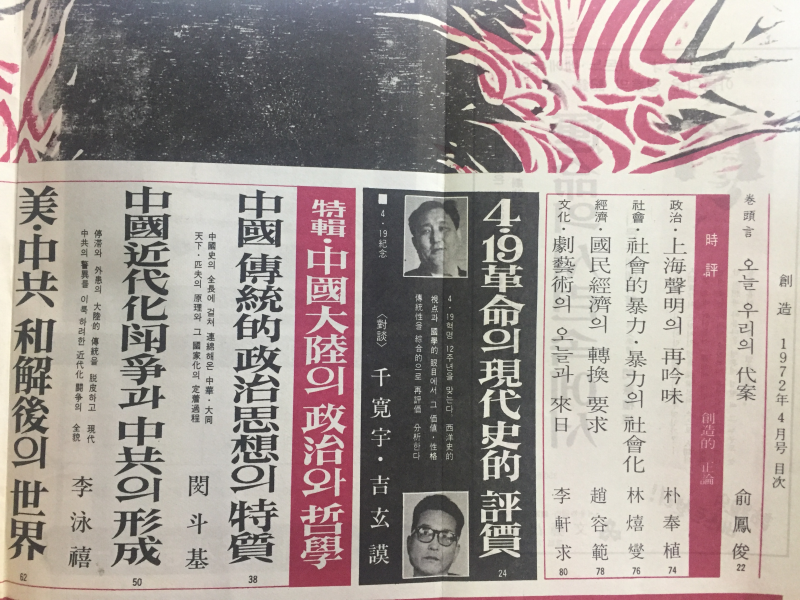 創造 1972年 4月号 目次
巻頭言 오늘 우리의 代案 俞鳳俊 22
時評 創造的 正論
政治·上海聲明의 再吟味 朴奉植 74
社會·社會的暴力·暴力의 社會化 林熺燮 76
經濟·國民經濟의 轉換 要求 趙容範 78
文化·劇藝術의 오늘과 來日 李軒求 80
4·19革命의 現代史的 評價 24
4·19혁명 12주년을 맞는다. 西洋史的
視点과 國學的 眼目에서 그 価値·性格
傳統性을 綜合的으로 再評価 分析한다
〈對談〉 千寬宇·吉玄謨
■ 4·19紀念
特輯·中國大陸의 政治와 哲學
中國 傳統的 政治思想의 特質 閔斗基 38
中國史의 全長에 걸쳐 連綿해온 中華·大同
天下·匹夫의 原理와 그 國家化의 定着過程
中國近代化闘爭과 中共의 形成 李泳禧 50
停滞와 外患의 大陸的 傳統을 脱皮하고 現代
中共의 驚異를 이룩하려한 近代化 闘争의 全貌
美·中共 和解後의 世界 62